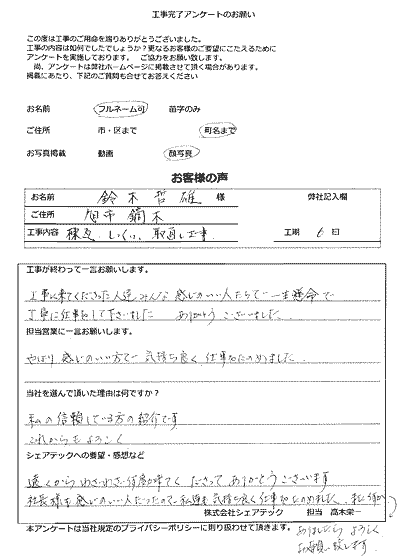 工事完了アンケートのお願い
この度は工事のご用命を賜りありがとうございました。
工事の内容は如何でしたでしょうか？更なるお客様のご要望にこたえるために
アンケートを実施しております。　ご協力をお願い致します。
尚、アンケートは弊社ホームページに掲載させて頂く場合があります。
掲載にあたり、下記のご質問も合せてお答えください
お名前　フルネーム可　苗字のみ
ご住所　市・区まで　町名まで
お写真掲載　動画　顔写真
お客様の声
お名前　鈴木哲雄　様　弊社記入欄
ご住所　旭市鏑木
工事内容　棟瓦　しっくい　取直し工事　工期　6　日
工事が終わって一言お願いします。
工事に来てくださった人達みんな感じのいい人たちで一生懸命で
丁寧に仕事をして下さいました　ありがとうございました
担当営業に一言お願いします。
やはり感じのいい方で気持ち良く仕事をたのめました
当社を選んで頂いた理由は何ですか？
私の信頼している方の紹介です
これからもよろしく
シェアテックへの要望・感想など
遠くからわざわざ何度か来てくださってありがとうございます
社長様も感じのいい人だったので私達も気持ち良く仕事をたのめました　又何か
株式会社シェアテック　担当　高木栄一
本アンケートは当社規定のプライバシーポリシーに則り扱わせて頂きます。
ありましたらよろしく
お願い致します